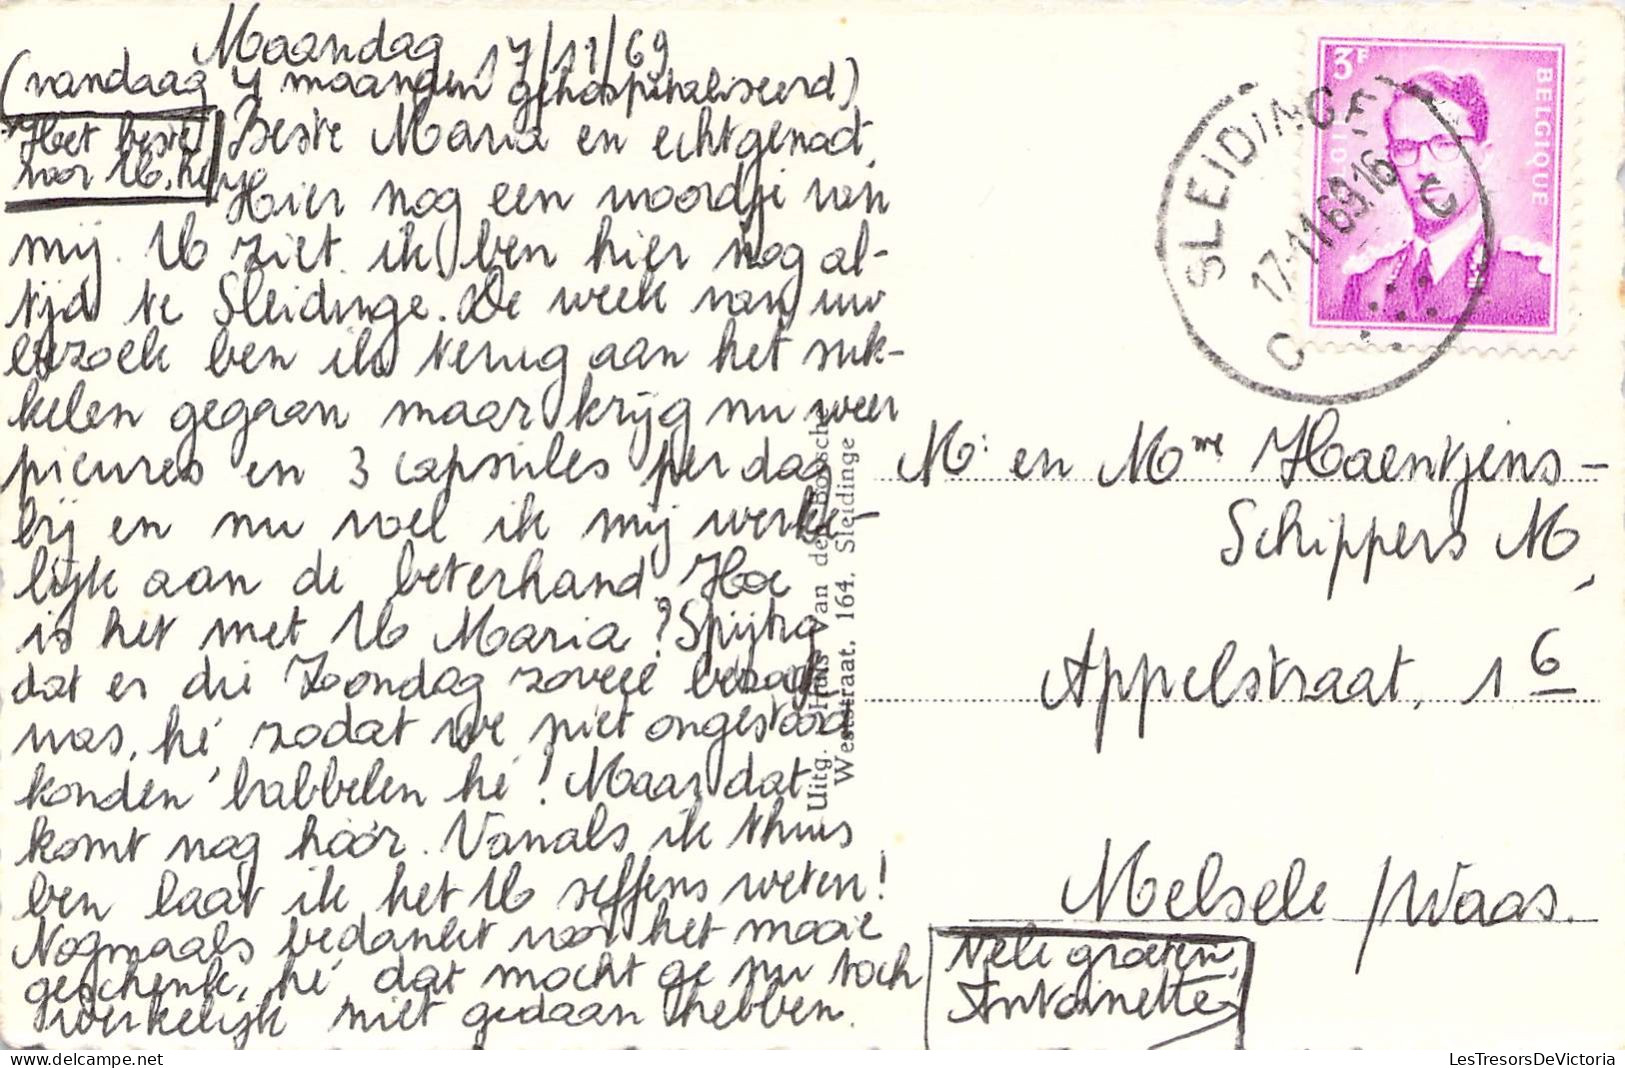 Maandag 17/11/69
(vandaag 4 maanden gehospitaliseerd)
Het beste
voor U, hé
Beste Maria en echtgenoot,
Hier nog een woordje van
mij. U ziet ik ben hier nog al-
tijd te Sleidinge. De week van uw
bezoek ben ik terug aan het suk-
kelen gegaan maar krijg nu weer
picures en 3 capsules per dag
bij en nu voel ik mij werke-
lijk aan de beterhand. Hoe
is het met U Maria? Spijtig
dat er die Zoondag zoveel bezoek
was, hé, zodat we niet ongestoord
konden babbelen hé! Maar dat
komt nog hoor. Vanals ik thuis
ben laat ik het U seffens weten!
Nogmaals bedankt voor het mooie
geschenk, hé, dat mocht ge nu toch
werkelijk niet gedaan hebben.
Uitg. Huis Van den Bossche
Weststraat, 164, Sleidinge
3F
BELGIQUE
SLEIDINGE
17-11 69.16
C
M. en Mme Haentjens-
Schippers M,
Appelstraat, 16
Melsele /Waas.
Vele groeten,
Antoinette
LesTresorsDeVictoria